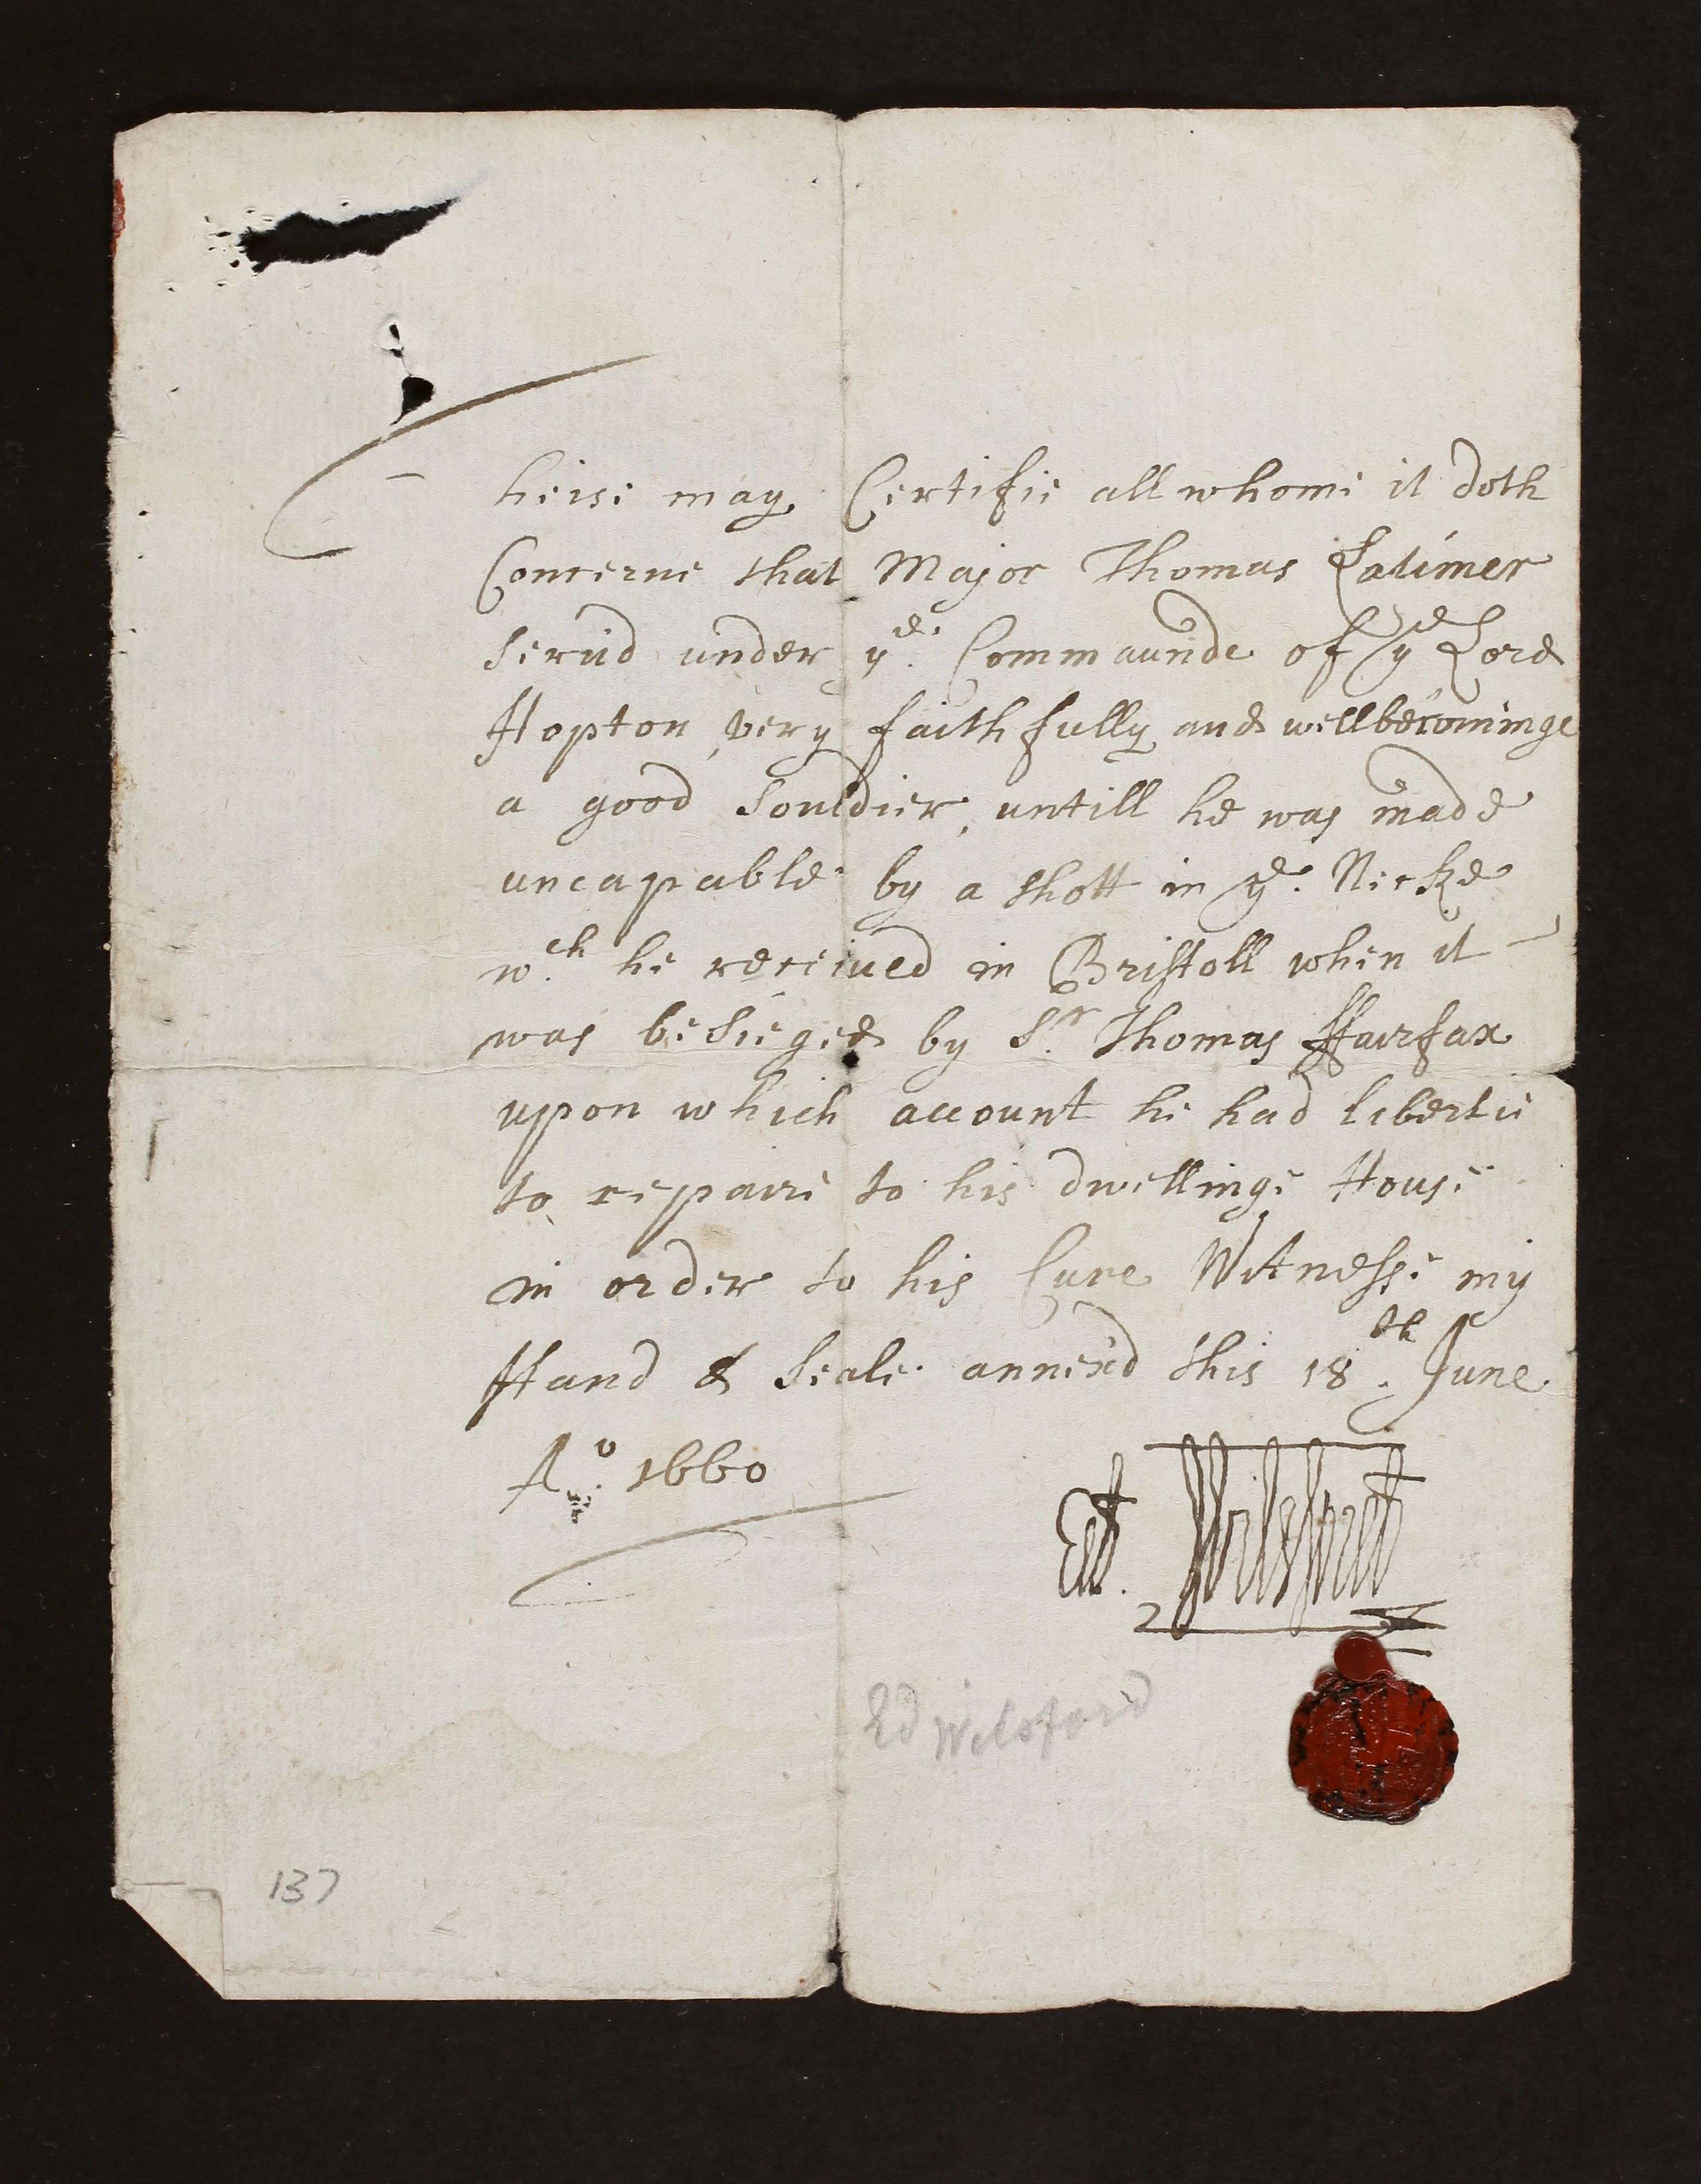 Theise may Certifie all whome it doth
Concerne that Major Thomas Latimer
Serud under ye. Commaunde of ye Lord
Hopton very faithfully and wellbecominge
a good Souldier, untill he was made
uncapable by a shott in ye. Necke
wch. he received in Bristoll when it
was besieged by Sr. Thomas ffairfax
upon which account he had libertie
to repaire to his dwellinge House
in order to his Cure Witnesse my
Hand & Seale annex'd this 18th. June
Ao. 1660
Ed. Wilsford
Ed Wilsford
137